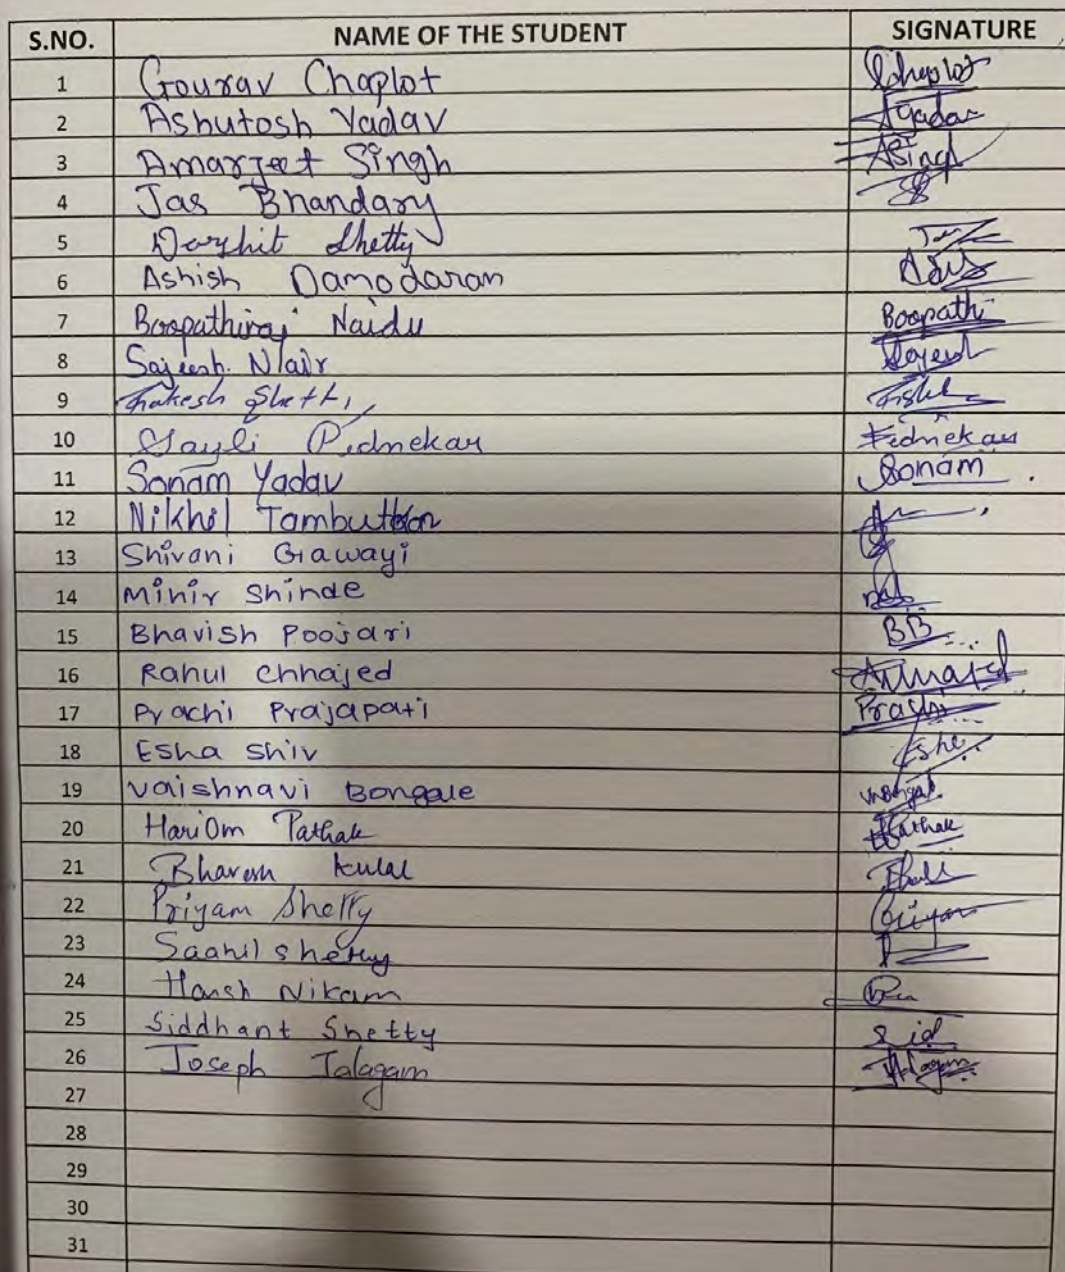 S.NO. NAME OF THE STUDENT SIGNATURE
1 Gourav Chaplot Chaplot
2 Ashutosh Yadav Ayadav
3 Amarjeet Singh ASingh
4 Jas Bhandary
5 Darshit Shetty
6 Ashish Damodaran
7 Boopathiraj Naidu Boopathi
8 Sajeesh. Nair Sajeesh
9 Shetti
10 Sayli Pednekar Pednekar
11 Sonam Yadav Sonam
12 Nikhil
13 Shivani Gawayi
14 Minir Shinde
15 Bhavish Poojari BB
16 Rahul Chhajed
17 Prachi Prajapati Prachi
18 Esha Shiv Esha
19 Vaishnavi Bongale
20 HariOm Pathak HPathak
21 Bhavesh Kulal
22 Priyam Shetty Priyam
23 Saahil Shetty
24 Harsh Nikam
25 Siddhant Shetty Sid
26 Joseph Jalagam Jalagam
27
28
29
30
31